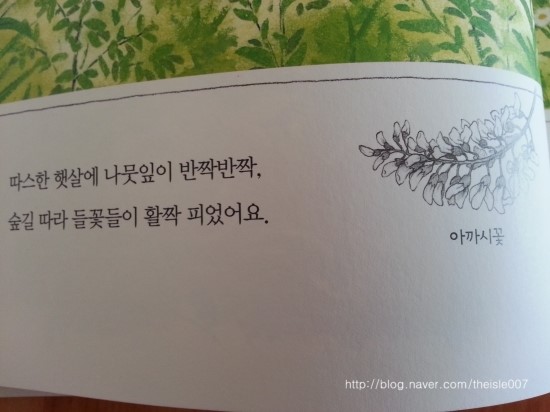 따스한 햇살에 나뭇잎이 반짝반짝,
숲길 따라 들꽃들이 활짝 피었어요.
아까시꽃
http://blog.naver.com/theisle007